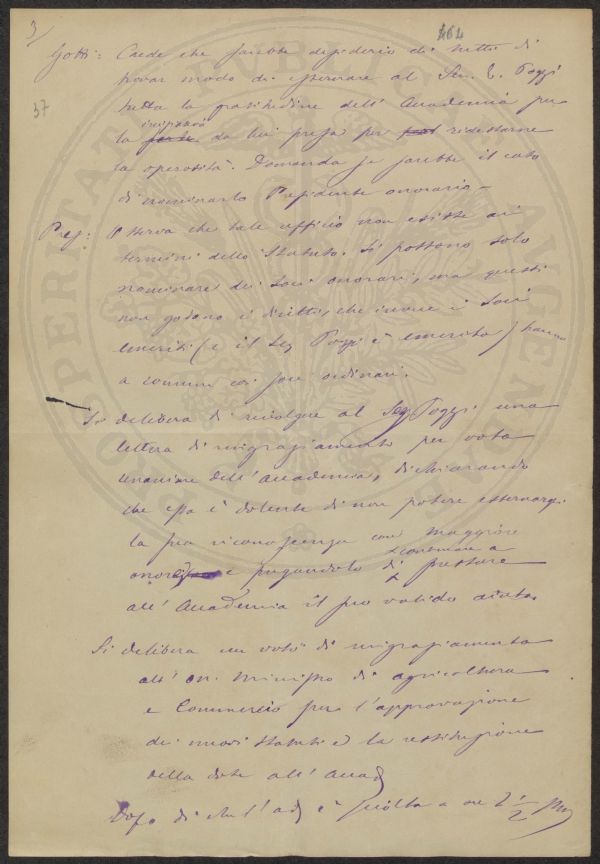 3)
464
37
Gotti: Crede che sarebbe desiderio di tutti di
trovar modo di esternare al Sen. E. Poggi
tutta la gratitudine dell' Accademia per
la iniziativa da lui presa per ridestarne
la operosità. Domanda se sarebbe il caso
di nominarlo Presidente onorario –
Pres: Osserva che tale ufficio non esiste ai
termini dello Statuto. Si possono solo
nominare dei Soci onorari, ma questi
non godono i diritti, che invece i Soci
emeriti (e il Sen Poggi è emerito) hanno
a comune coi soci ordinari.
Si delibera di rivolgere al Sen Poggi una
lettera di ringraziamento per voto
unanime dell' Accademia, dichiarando
che essa è dolente di non potere esternargli
la sua riconoscenza con maggiore
onore e pregandolo di continuare a prestare
all' Accademia il suo valido aiuto.
Si delibera un voto di ringraziamento
all' on. Ministro di agricoltura
e Commercio per l'approvazione
dei nuovi Statuti e la restituzione
della dote all' Accad
Dopo di che l'ad è sciolta a ore 2 1/2 pm
PROSPERITATI PUBLICAE AUGENDAE